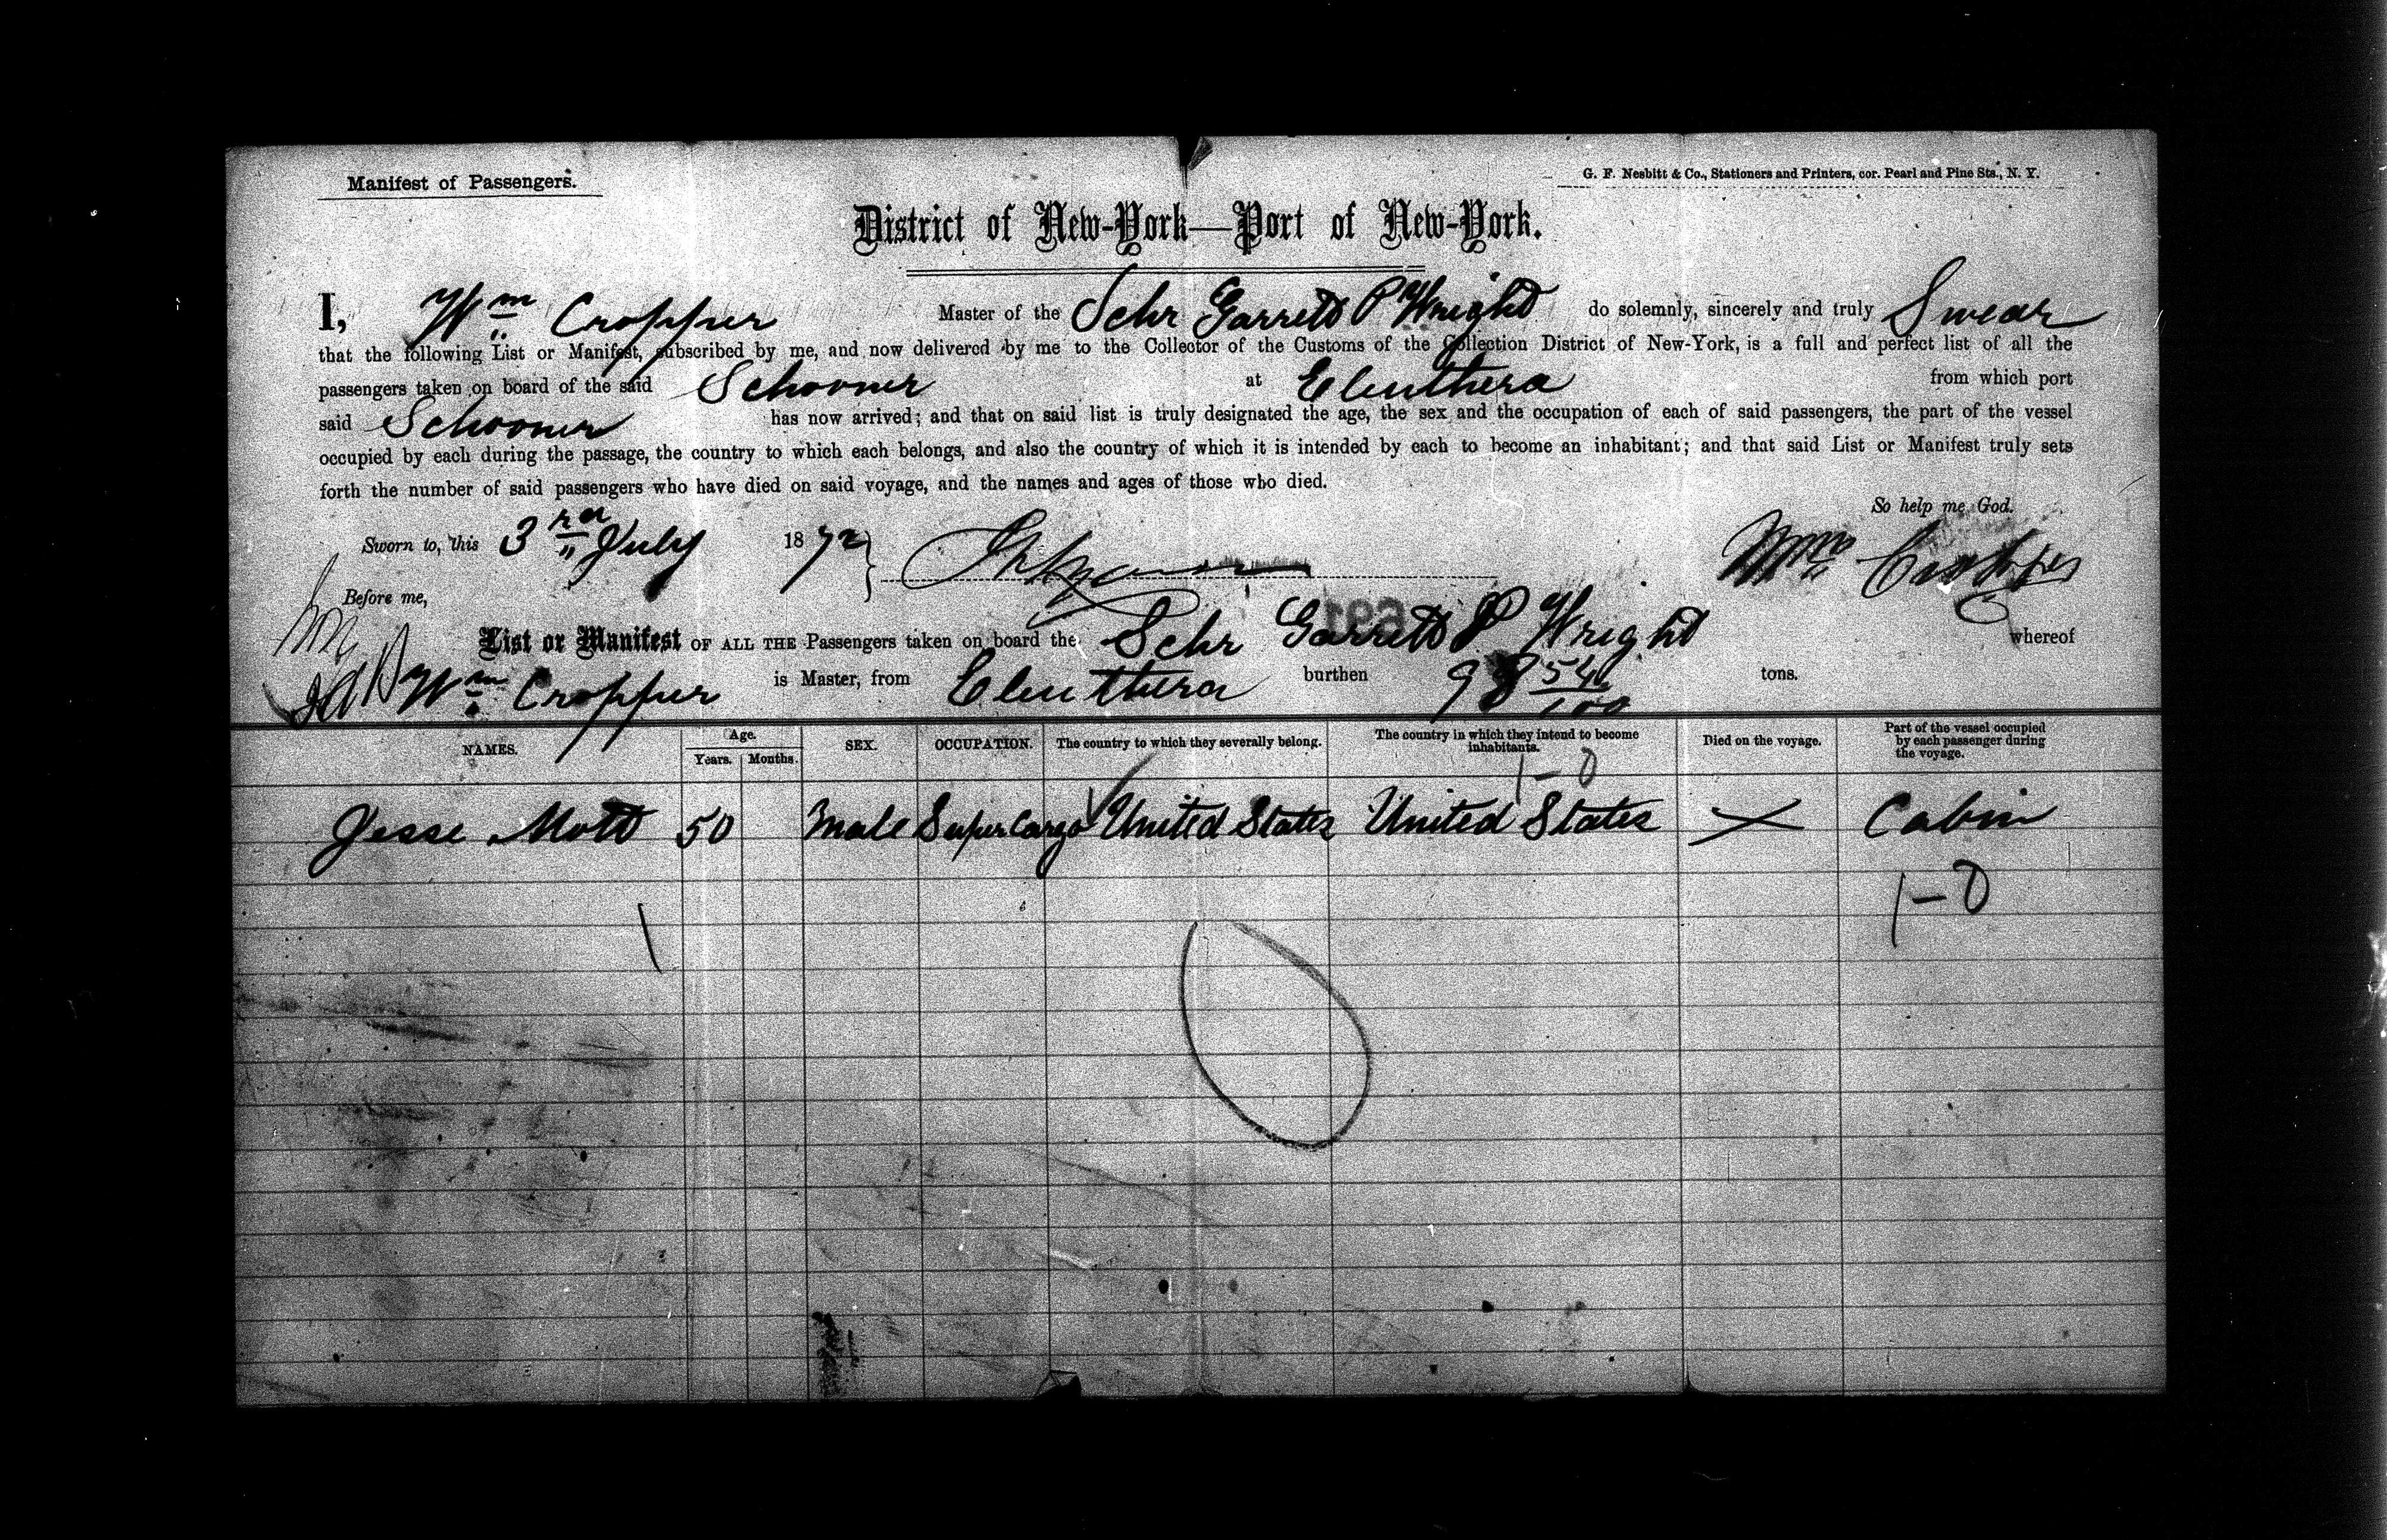 Manifest of Passengers.
G. F. Nesbitt & Co., Stationers and Printers, cor. Pearl and Pine Sts., N. Y.
District of New-York—Port of New-York.
I, Wm Cropper Master of the Schr Garrett P Wright do solemnly, sincerely and truly Swear
that the following List or Manifest, subscribed by me, and now delivered by me to the Collector of the Customs of the Collection District of New-York, is a full and perfect list of all the
passengers taken on board of the said Schooner at Eleuthera from which port
said Schooner has now arrived; and that on said list is truly designated the age, the sex and the occupation of each of said passengers, the part of the vessel
occupied by each during the passage, the country to which each belongs, and also the country of which it is intended by each to become an inhabitant; and that said List or Manifest truly sets
forth the number of said passengers who have died on said voyage, and the names and ages of those who died.
So help me God.
Sworn to, this 3rd July 1872 Wm Cropper
Before me,
List or Manifest OF ALL THE Passengers taken on board the Schr Garrett P Wright whereof
Wm Cropper is Master, from Eleuthera burthen 98 54/100 tons.
NAMES. Age. Years. Months. SEX. OCCUPATION. The country to which they severally belong. The country in which they intend to become inhabitants. Died on the voyage. Part of the vessel occupied by each passenger during the voyage.
1-0
Jesse Mott 50 Male Supercargo United States United States Cabin
1-0
1